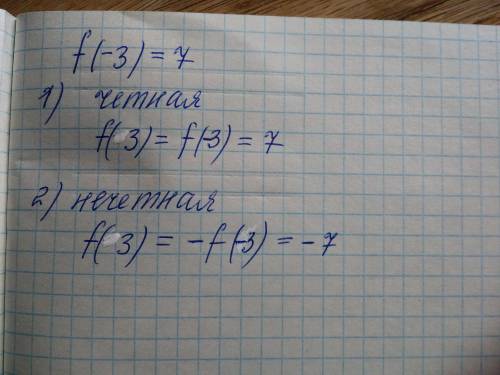 f(-3) = 7
1) четная
f( 3) = f(-3) = 7
2) нечетная
f( 3) = -f(-3) = -7